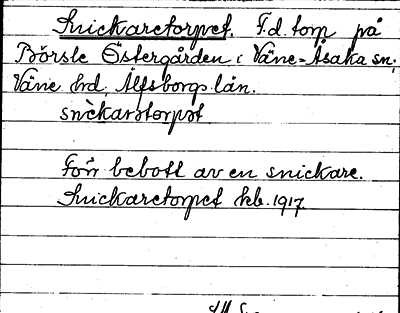 Snickaretorpet. F.d. torp på
Börsle Östergården i Väne-Åsaka sn,
Väne hd, Älfsborgs län.
snèkarətorpət
Förr bebott av en snickare.
Snickaretorpet kb. 1917